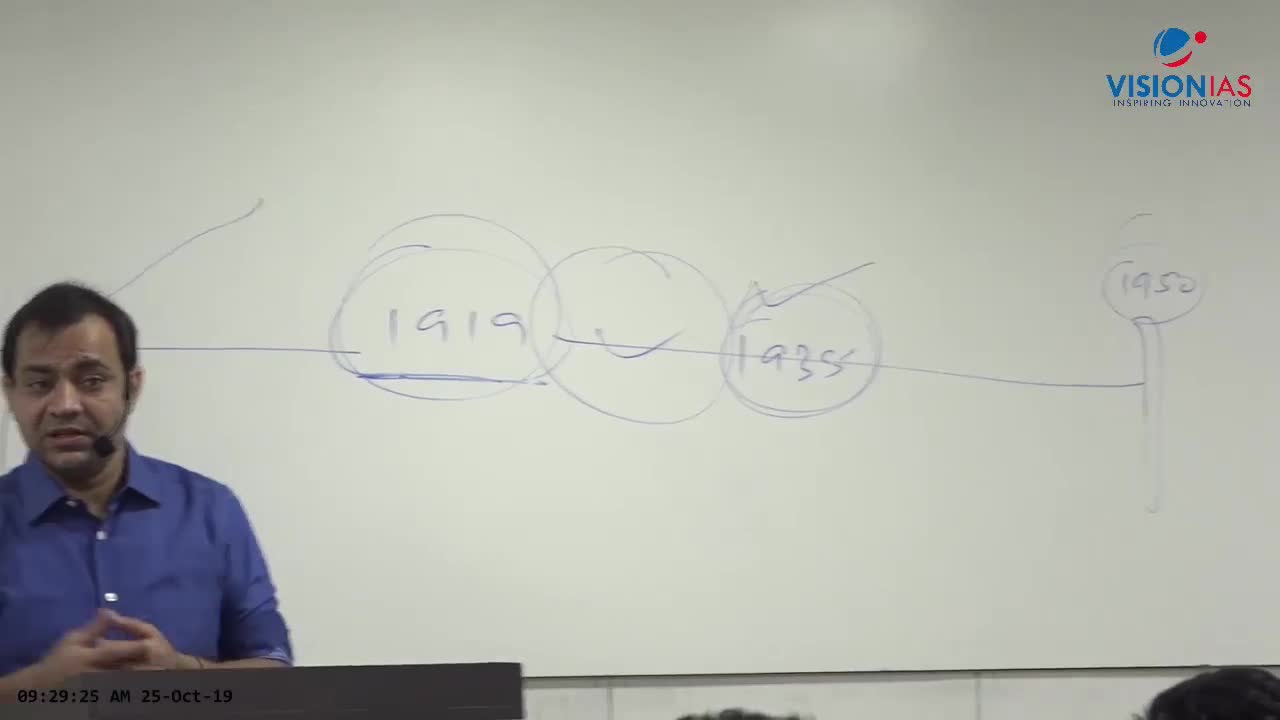 VISIONIAS
INSPIRING INNOVATION
1919
1935
1950
09:29:25 AM 25-Oct-19